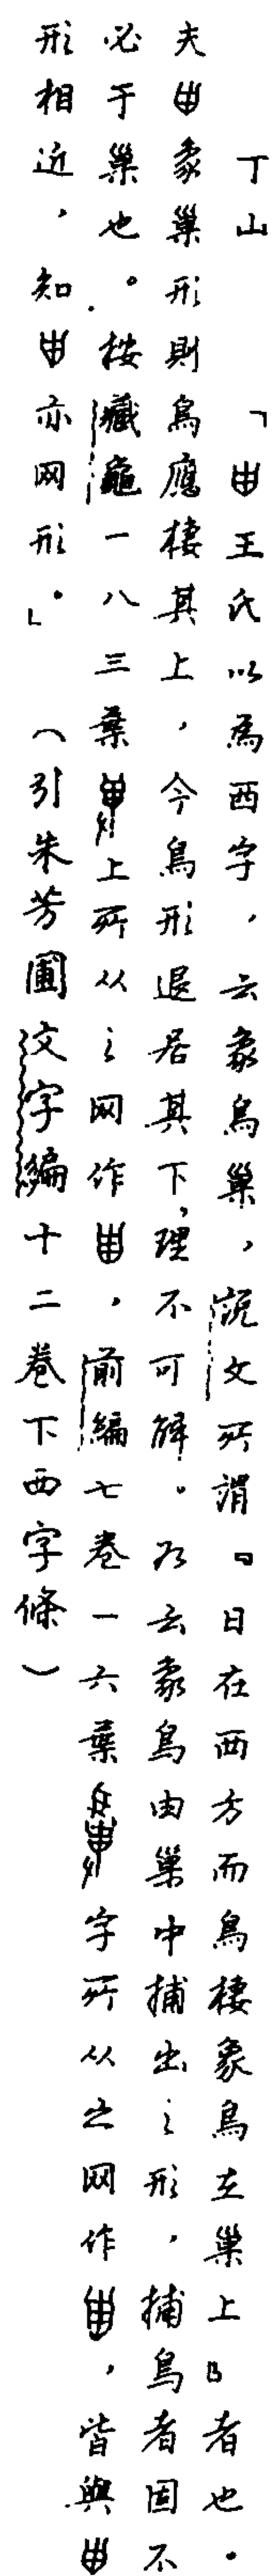 丁山　「甶王氏以為西字，云象鳥巢，說文所謂『日在西方而鳥棲象鳥在巢上』者也。
夫甶象巢形則鳥應棲其上，今鳥形退居其下，理不可解。如云象鳥由巢中捕出之形，捕鳥者固不
必于巢也。按藏龜一八三葉上所从之网作，前編七卷一六葉字所从之网作，皆與甶
形相近，知甶亦网形。」（引朱芳圃文字編十二卷下西字條）